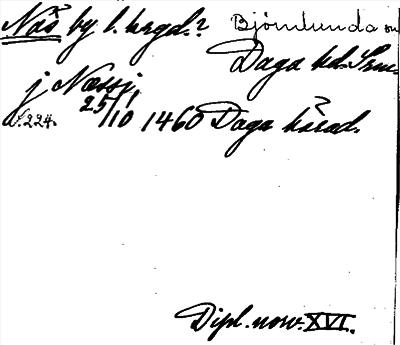 Näs by l. hrgd.? Björnlunda sn
Daga hd. Srm.
j Næssj,
S. 224. 25/10 1460 Daga härad.
Dipl. norv. XVI.